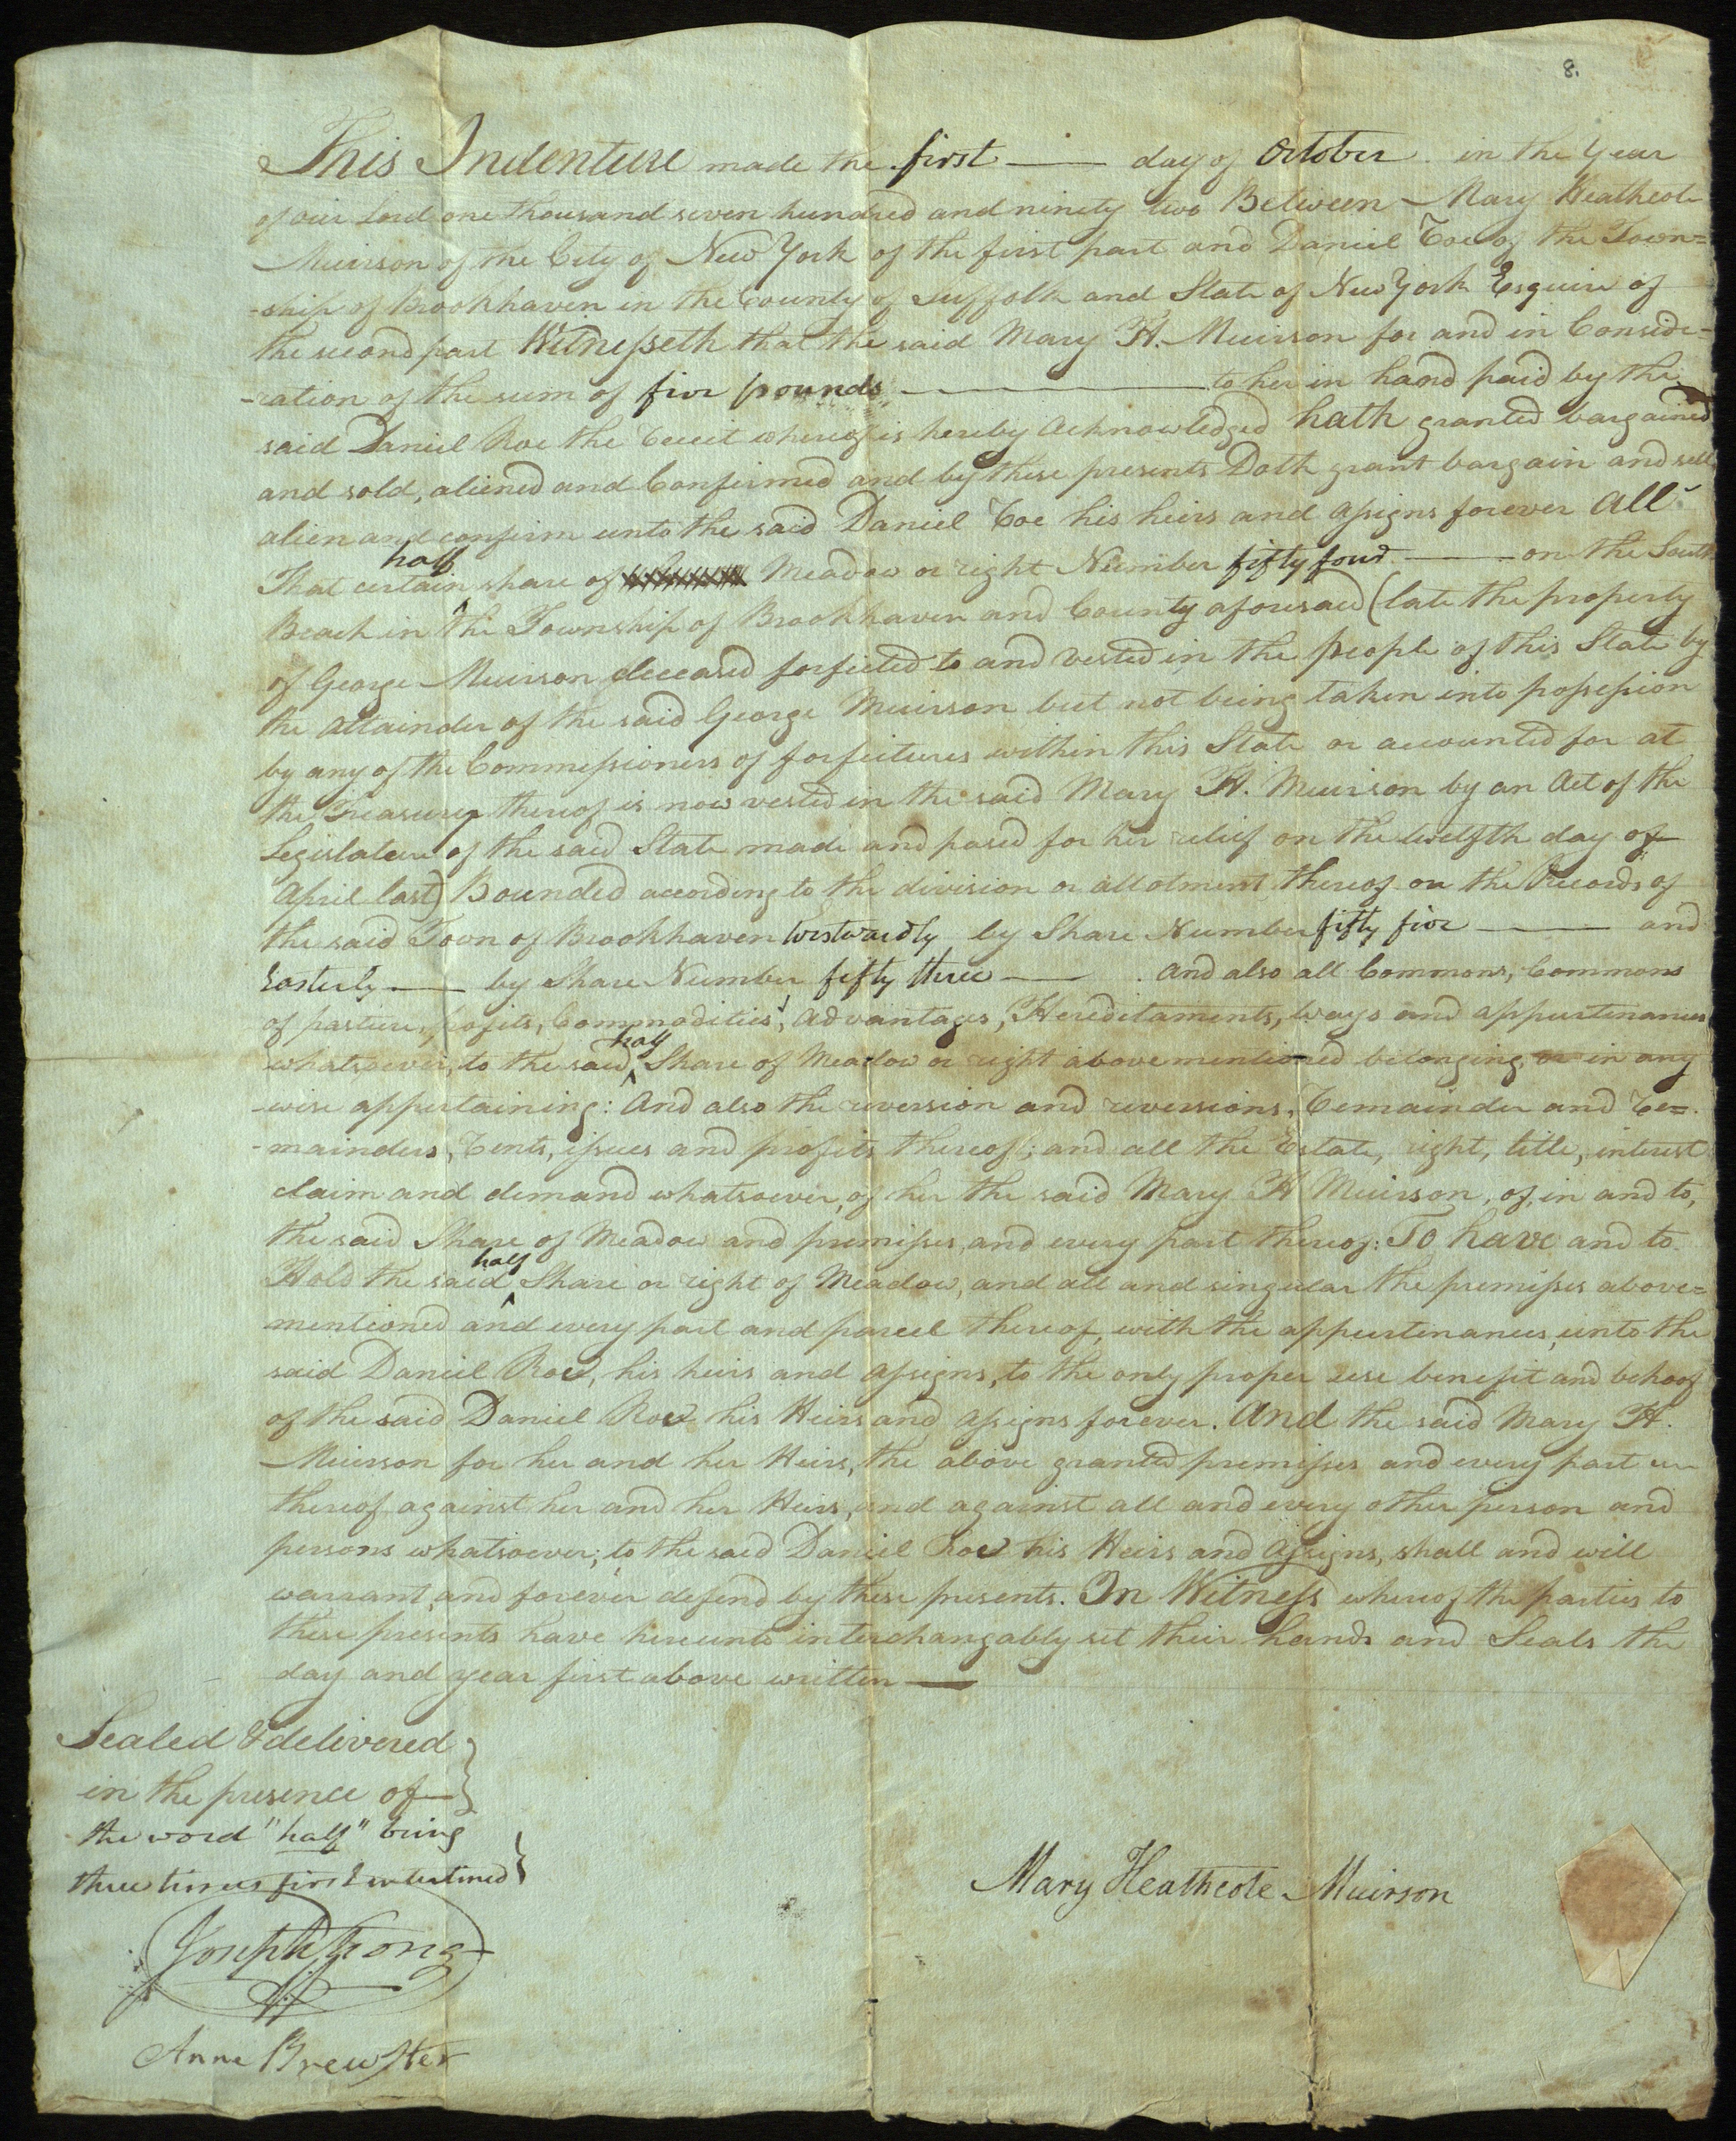 8.
This Indenture made the first —— day of October in the Year
of our Lord one thousand seven hundred and ninety two Between Mary Heathcote
Muirson of the City of New York of the first part and Daniel Roe of the Town=
-ship of Brookhaven in the County of Suffolk and State of New York Esquire of
the second part Witnesseth that the said Mary H. Muirson for and in Conside-
-ration of the sum of five pounds —— to her in hand paid by the
said Daniel Roe the Receit whereof is hereby Acknowledged hath granted bargained
and sold, aliened and Confirmed and by these presents Doth grant bargain and sell
alien and confirm unto the said Daniel Roe his heirs and assigns forever All
half
That certain share of Meadow or right Number fifty four —— on the South
Beach in ^ the Township of Brookhaven and County aforesaid (late the property
of George Muirson deceased forfieted to and Vested in the people of this State by
the attainder of the said George Muirson but not being taken into possession
by any of the Commissioners of forfeitures within this State or accounted for at
the Treasury thereof is now vested in the said Mary H. Muirson by an Act of the
Legislature of the said State made and pased for her relief on the twelfth day of
April last) Bounded according to the division or allotment thereof on the Records of
the said Town of Brookhaven Westwardly by Share Number fifty five —— and
Easterly —— by Share Number fifty three —— . And also all Commons, Commons
of pasture, profits, Commodities, Advantages, Hereditaments, ways and appurtenances
half
whatsoever, to the said ^ Share of Meadow or right abovementioned belonging, or in any
-wise appertaining: And also the reversion and reversions, Remainder and Re=
-mainders, Rents, issues and profits thereof; and all the Estate, right, title, interest
claim and demand whatsoever, of her the said Mary H Muirson, of, in and to,
the said Share of Meadow and premisses, and every part thereof: To have and to
half
Hold the said ^ Share or right of Meadow, and all and singular the premisses above=
mentioned and every part and parcel thereof, with the appurtenances, unto the
said Daniel Roe, his heirs and assigns, to the only proper use benefit and behoof
of the said Daniel Roe his Heirs and assigns forever. And the said Mary H.
Muirson for her and her Heirs, the above granted premisses and every part
thereof against her and her Heirs, and against all and every other person and
persons whatsoever, to the said Daniel Roe his Heirs and Assigns, shall and will
warrant, and forever defend by these presents. In Witness whereof the parties to
these presents have hereunto interchangably set their hands and Seals the
day and year first above written ——
Sealed & delivered
in the presence of
the word "half" being
three times first interlined
Mary Heathcote Muirson
Joseph Strong
Anne Brewster